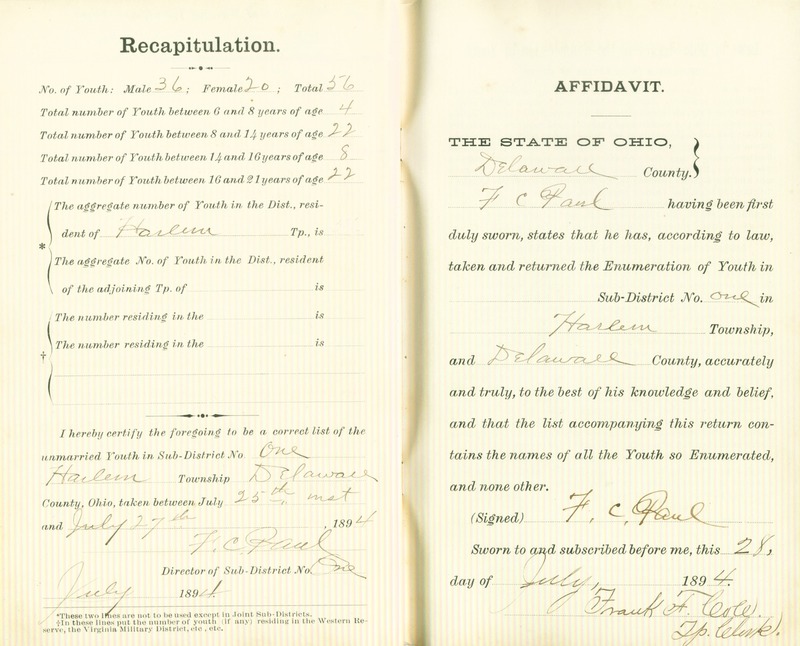 Recapitulation.
No. of Youth: Male 36; Female 20; Total 56
Total number of Youth between 6 and 8 years of age 4
Total number of Youth between 8 and 14 years of age 22
Total number of Youth between 14 and 16 years of age 8
Total number of Youth between 16 and 21 years of age 22
The aggregate number of Youth in the Dist., resi-
dent of Harlem Tp., is
*
The aggregate No. of Youth in the Dist., resident
of the adjoining Tp. of is
The number residing in the is
†
The number residing in the is
I hereby certify the foregoing to be a correct list of the
unmarried Youth in Sub-District No. One
Harlem Township Delaware
County, Ohio, taken between July 25th inst
and July 27th, 1894
F. C. Paul
Director of Sub-District No. One
July 1894
*These two lines are not to be used except in Joint Sub-Districts.
†In these lines put the number of youth (if any) residing in the Western Re-
serve, the Virginia Military District, etc., etc.
AFFIDAVIT.
THE STATE OF OHIO,
Delaware County. }
F C Paul having been first
duly sworn, states that he has, according to law,
taken and returned the Enumeration of Youth in
Sub-District No. one in
Harlem Township,
and Delaware County, accurately
and truly, to the best of his knowledge and belief,
and that the list accompanying this return con-
tains the names of all the Youth so Enumerated,
and none other.
(Signed) F. C. Paul
Sworn to and subscribed before me, this 28,
day of July, 1894.
Frank F. Cole.
Tp. Clerk.